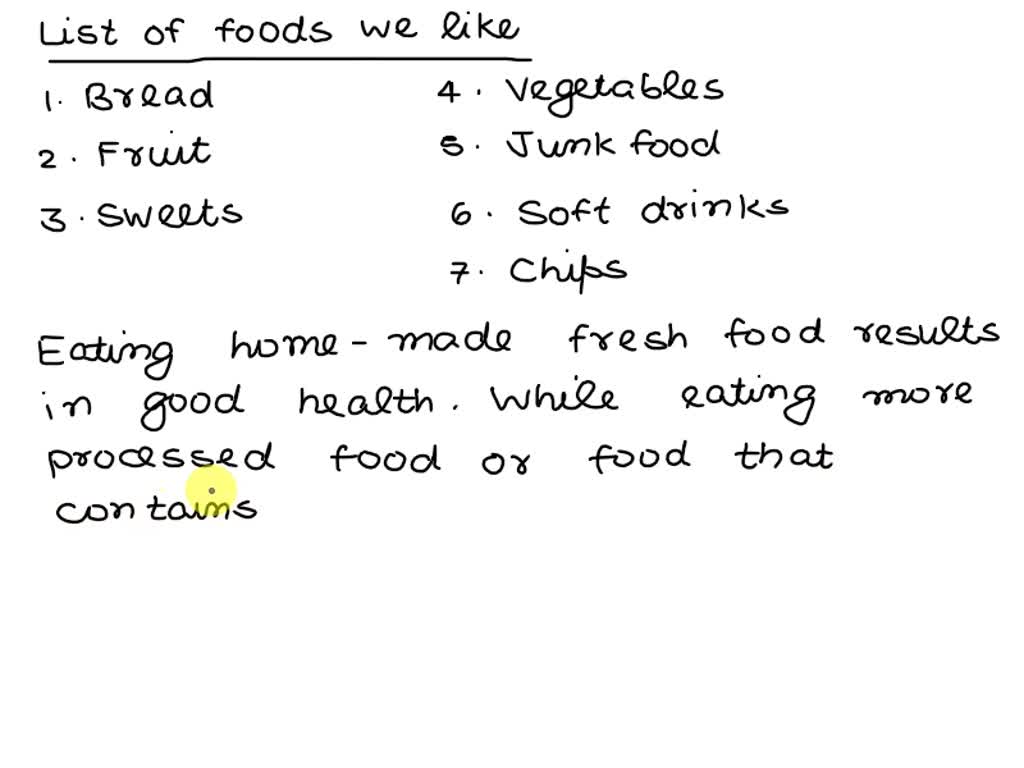 List of foods we like
1. Bread
2. Fruit
3. Sweets
4. Vegetables
5. Junk food
6. Soft drinks
7. Chips
Eating home-made fresh food results
in good health. While eating more
processed food or food that
contains